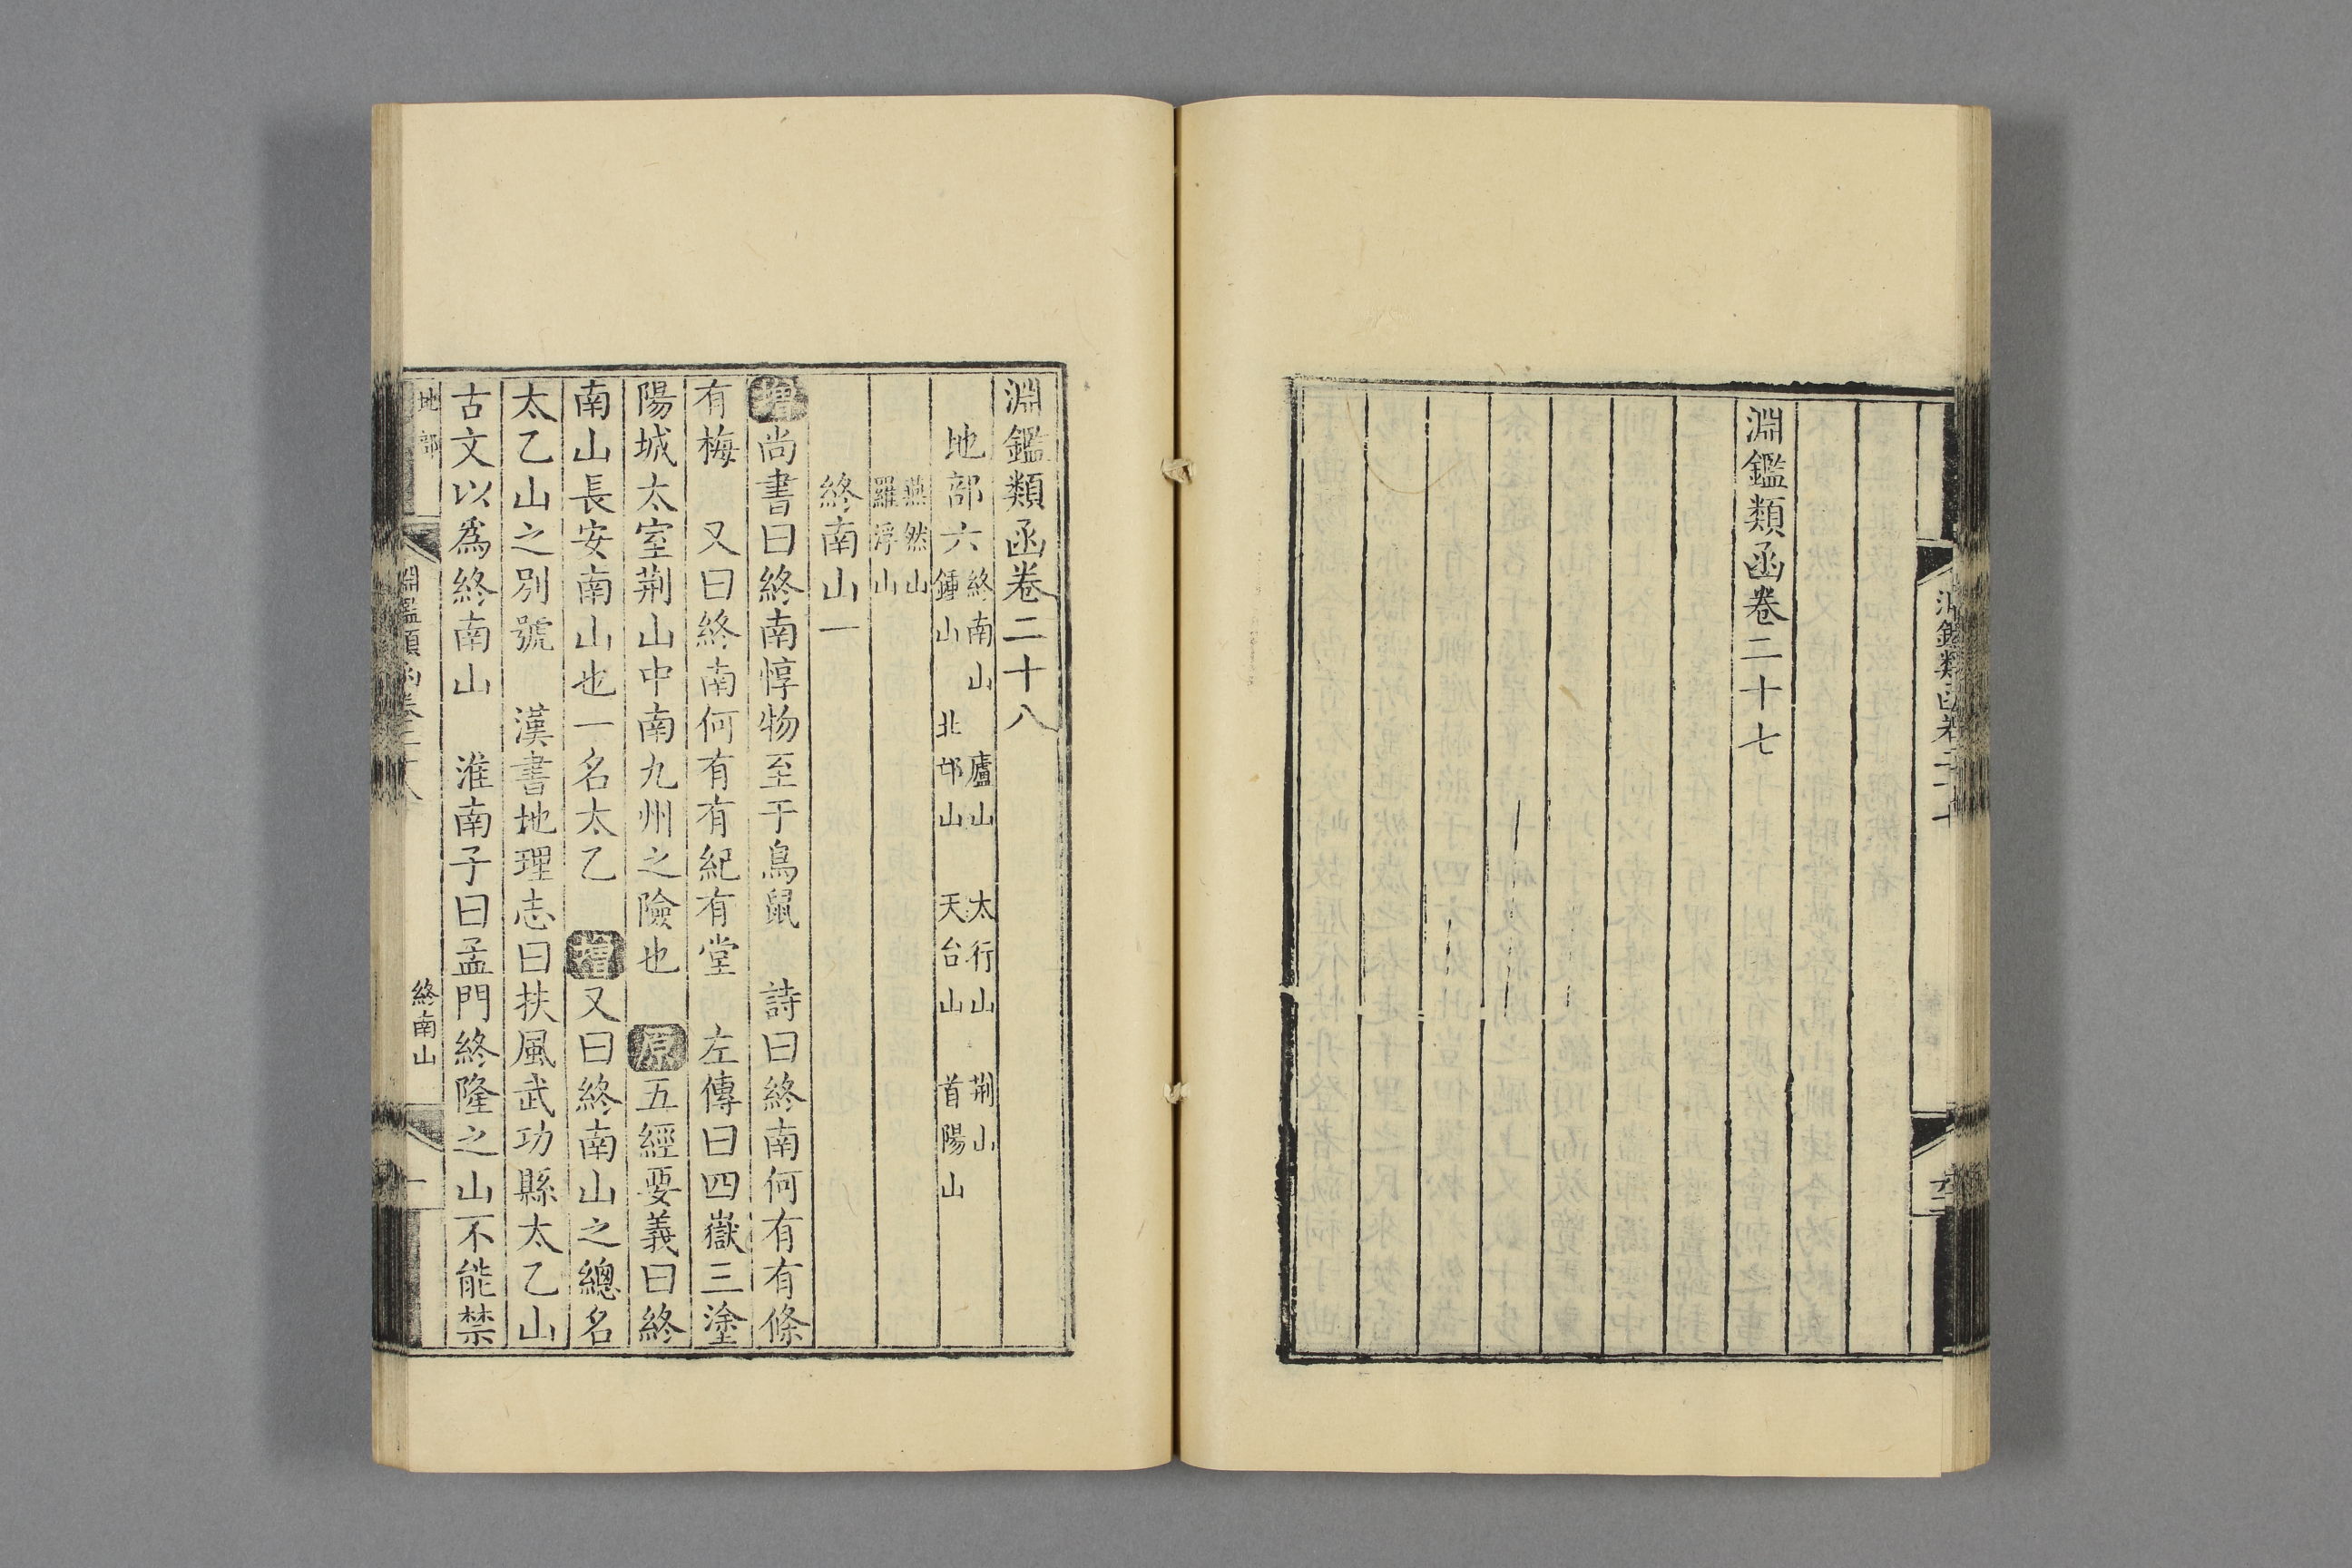 淵鑑類函卷二十七
淵鑑類函卷二十八
地部六 終南山 廬山 太行山 荆山
鍾山 北邙山 天台山 首陽山
燕然山
羅浮山
終南山一
增尚書曰終南惇物至于鳥鼠 詩曰終南何有有條
有梅 又曰終南何有有紀有堂 左傳曰四嶽三塗
陽城太室荆山中南九州之險也 原五經要義曰終
南山長安南山也一名太乙 增又曰終南山之總名
太乙山之別號 漢書地理志曰扶風武功縣太乙山
古文以爲終南山 淮南子曰孟門終隆之山不能禁
地部
淵鑑類函卷二十八
終南山
一